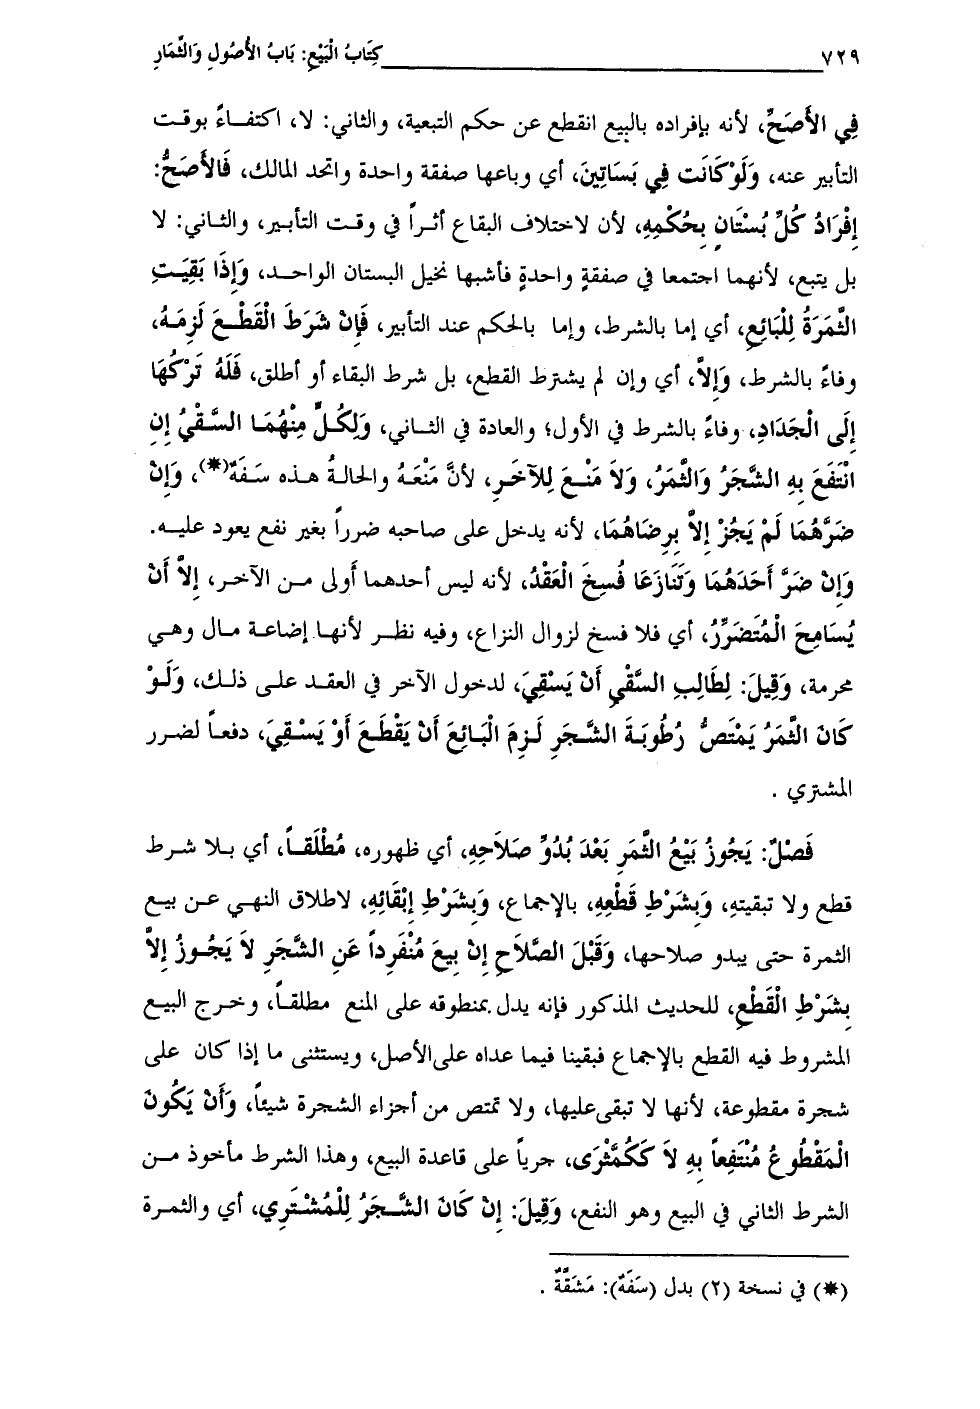 ٧٢٩ كِتَابُ الْبَيْعِ: بَابُ الأُصُولِ وَالثِّمَارِ
فِي الأَصَحِّ، لأنه بإفراده بالبيع انقطع عن حكم التبعية، والثاني: لا، اكتفـاءً بوقت
التأبير عنه، وَلَوْ كَانَت فِي بَسَاتِينَ، أي وباعها صفقة واحدة واتحد المالك، فَالأَصَحُّ:
إِفْرَادُ كُلِّ بُسْتَانٍ بِحُكْمِهِ، لأن لاختلاف البقاع أثـراً في وقـت التأبـير، والثـاني: لا
بل يتبع، لأنهما اجتمعا في صفقةٍ واحدةٍ فأشبها نخيل البستان الواحـد، وَإِذَا بَقِيَـتِ
الثَّمَرَةُ لِلْبَائِعِ، أي إما بالشرط، وإما بالحكم عند التأبير، فَإِنْ شَرَطَ الْقَطْـعَ لَزِمَـهُ،
وفاءً بالشرط، وَإِلاَّ، أي وإن لم يشترط القطع، بل شرط البقاء أو أطلق، فَلَهُ تَرْكُهَا
إِلَى الْجَدَادِ، وفاءً بالشرط في الأول؛ والعادة في الثـاني، وَلِكُـلٍّ مِنْهُمَـا السَّـقْيُ إِنِ
انْتَفَعَ بِهِ الشَّجَرُ وَالثَّمَرُ، وَلاَ مَنْـعَ لِلآخَـرِ، لأنَّ مَنْعَـهُ والحالـةُ هـذه سَـفَهٌ(*)، وَإِنْ
ضَرَّهُمَا لَمْ يَجُزْ إِلاَّ بِرِضَاهُمَا، لأنه يدخل على صاحبه ضرراً بغير نفع يعود عليـه.
وَإِنْ ضَرَّ أَحَدَهُمَا وَتَنَازَعَا فُسِخَ الْعَقْدُ، لأنه ليس أحدهما أولى مـن الآخـر، إِلاَّ أَنْ
يُسَامِحَ الْمُتَضَرِّرُ، أي فلا فسخ لزوال النزاع، وفيه نظـر لأنهـا إضاعـة مـال وهـي
محرمة، وَقِيلَ: لِطَالِبِ السَّقْيِ أَنْ يَسْقِيَ، لدخول الآخر في العقـد علـى ذلـك، وَلَـوْ
كَانَ الثَّمَرُ يَمْتَصُّ رُطُوبَـةَ الشَّـجَرِ لَـزِمَ الْبَائِعَ أَنْ يَقْطَـعَ أَوْ يَسْـقِيَ، دفعـاً لضـرر
المشتري .
فَصْلٌ: يَجُوزُ بَيْعُ الثَّمَرِ بَعْدَ بُدُوِّ صَلاَحِهِ، أي ظهوره، مُطْلَقـاً، أي بـلا شـرط
قطع ولا تبقيتهِ، وَبِشَرْطِ قَطْعِهِ، بالإجماع، وَبِشَرْطِ إِبْقَائِهِ، لاطلاق النهي عـن بيـع
الثمرة حتى يبدو صلاحها، وَقَبْلَ الصَّلاَحِ إِنْ بِيعَ مُنْفَرِداً عَنِ الشَّجَرِ لاَ يَجُـوزُ إِلاَّ
بِشَرْطِ الْقَطْعِ، للحديث المذكور فإنه يدل بمنطوقه على المنع مطلقـاً، وخـرج البيع
المشروط فيه القطع بالإجماع فبقينا فيما عداه على الأصل، ويستثنى ما إذا كان على
شجرة مقطوعة، لأنها لا تبقى عليها، ولا تمتص من أجزاء الشجرة شيئاً، وَأَنْ يَكُونَ
الْمَقْطُوعُ مُنْتَفِعاً بِهِ لاَ كَكُمَّثْرَى، جرياً على قاعدة البيع، وهذا الشرط مأخوذ مـن
الشرط الثاني في البيع وهو النفع، وَقِيلَ: إِنْ كَانَ الشَّـجَرُ لِلْمُشْـتَرِي، أي والثمـرة
(*) في نسخة (٢) بدل (سَفَهٌ): مَشَقَّةٌ .